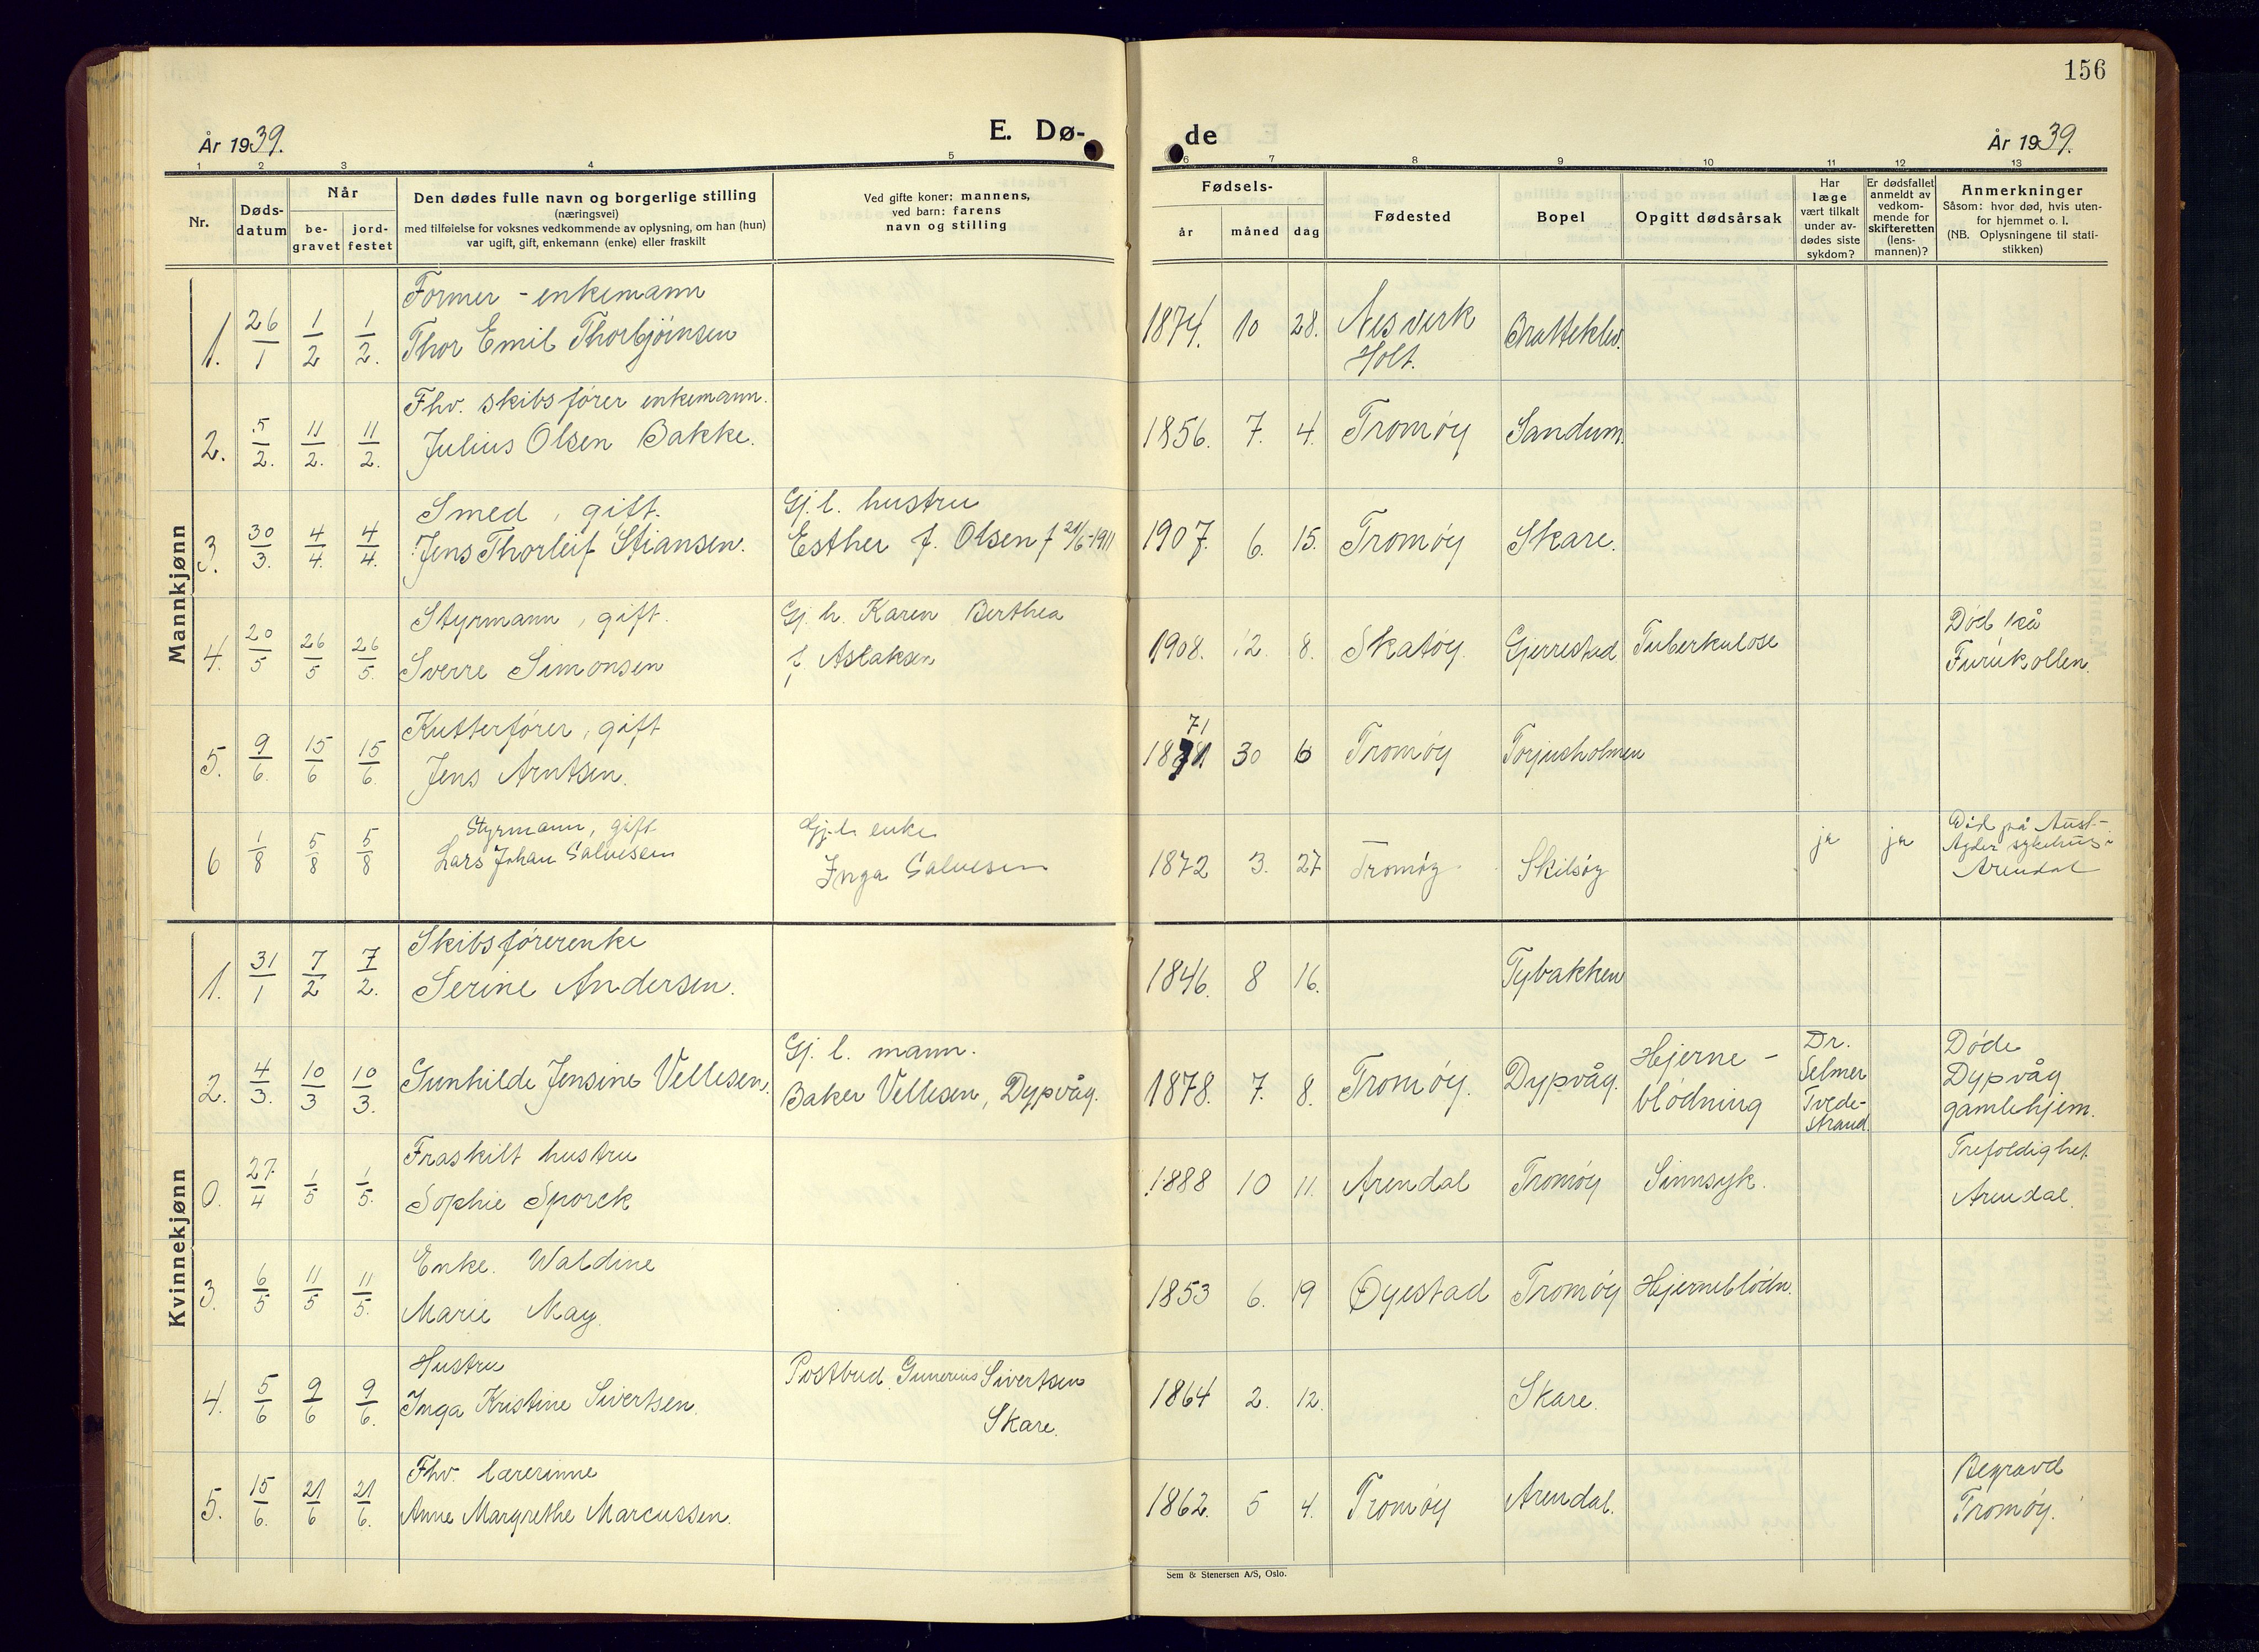 156
År 1939.
E. Dø-
de
År 1939.
1 2 3 4 5 6 7 8 9 10 11 12 13
Nr.
Døds-
datum
Når
be-
gravet
jord-
festet
Den dødes fulle navn og borgerlige stilling
(næringsvei)
med tilføielse for voksnes vedkommende av oplysning, om han (hun)
var ugift, gift, enkemann (enke) eller fraskilt
Ved gifte koner: mannens,
ved barn: farens
navn og stilling
Fødsels-
år måned dag
Fødested
Bopel
Opgitt dødsårsak
Har
læge
vært tilkalt
under av-
dødes siste
sykdom?
Er dødsfallet
anmeldt av
vedkom-
mende for
skifteretten
(lens-
mannen)?
Anmerkninger
Såsom: hvor død, hvis uten-
for hjemmet o. l.
(NB. Oplysningene til stati-
stikken)
Mannkjønn
1. 26/1 1/2 1/2.
Former - enkemann
Thor Emil Thorbjörnsen
1874. 10 28.
Nesverk
Holt.
Bratteklev.
2. 5/2. 11/2. 11/2.
Fhv. skibsfører enkemann.
Julius Olsen Bakke.
1856. 7. 4. Tromøy Sandum.
3. 30/3. 4/4. 4/4.
Smed, gift.
Jens Thorleif Stiansen.
Gj. l. hustru
Esther f. Olsen f 21/6-1911
1907. 6. 15. Tromøy Skare.
4. 20/5 26/5 26/5.
Styrmann, gift.
Sverre Simonsen
Gj. h. Karen Berthea
f. Aslaksen
1908. 12. 8. Skatøy. Gjerrestad Tuberkulose
Død på
Furukollen.
5. 9/6. 15/6 15/6.
Kutterfører, gift
Jens Arntsen.
71
1871 30 6 Tromøy Torjusholmen
6 1/8 5/8 5/8
Styrmann, gift
Lars Johan Salvesen
Gj. l. enke
Inga Salvesen
1872 3. 27 Tromøy Skilsøy
ja ja
Død på Aust-
Agder sykehus i
Arendal
Kvinnekjønn
1. 31/1 7/2 7/2.
Skibsførerenke
Serine Andersen.
1846. 8 16. Tybakken
2. 4/3. 10/3 10/3.
Gunhilde Jensine Vellesen.
Gj. l. mann.
Baker Vellesen, Dypvåg.
1878. 7. 8. Tromøy. Dypvåg.
Hjerne-
blödning
Dr.
Selmer
Tvede-
strand.
Døde
Dypvåg
gamlehjem.
0. 27/4 1/5 1/5.
Fraskilt hustru
Sophie Sporck
1888 10 11. Arendal Tromøy Sinnsyk.
Trefoldighet.
Arendal.
3. 6/5 11/5 11/5.
Enke. Waldine
Marie May.
1853 6. 19 Øyestad Tromøy Hjerneblödn.
4. 5/6 9/6 9/6.
Hustru
Inga Kristine Sivertsen.
Postbud Gunerius Sivertsen
Skare.
1864 2. 12. Skare.
5. 15/6. 21/6 21/6.
Fhv. lærerinne
Anne Margrethe Marcussen.
1862. 5 4. Tromøy Arendal.
Begravd
Tromøy.
Sem & Stenersen A/S, Oslo.